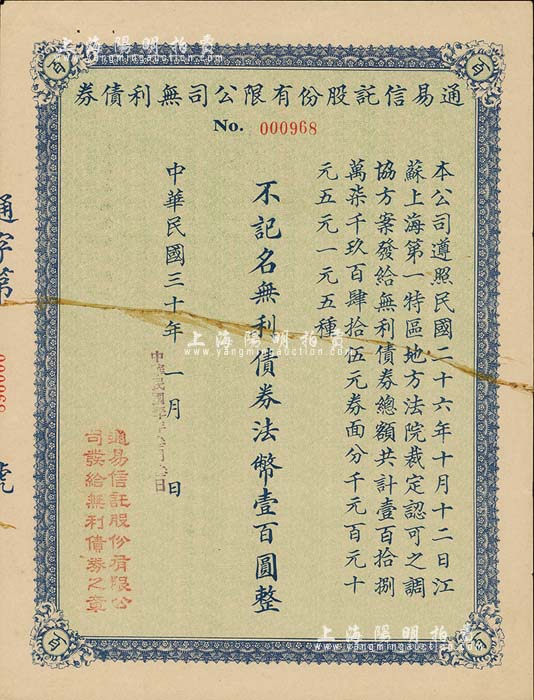 上海陽明拍賣
百
百
通易信託股份有限公司無利債券
No. 000968
本公司遵照民國二十六年十月十二日江
蘇上海第一特區地方法院裁定認可之調
協方案發給無利債券總額共計壹百拾捌
萬柒千玖百肆拾伍元券面分千元百元十
元五元一元五種
不記名無利債券法幣壹百圓整
中華民國三十年一月 日
通易信託股份有限公
司發給無利債券之章
通字第
000968
號
上海陽明拍賣
www.yangmingauction.com
百
百
上海陽明拍賣
www.yangmingauction.com